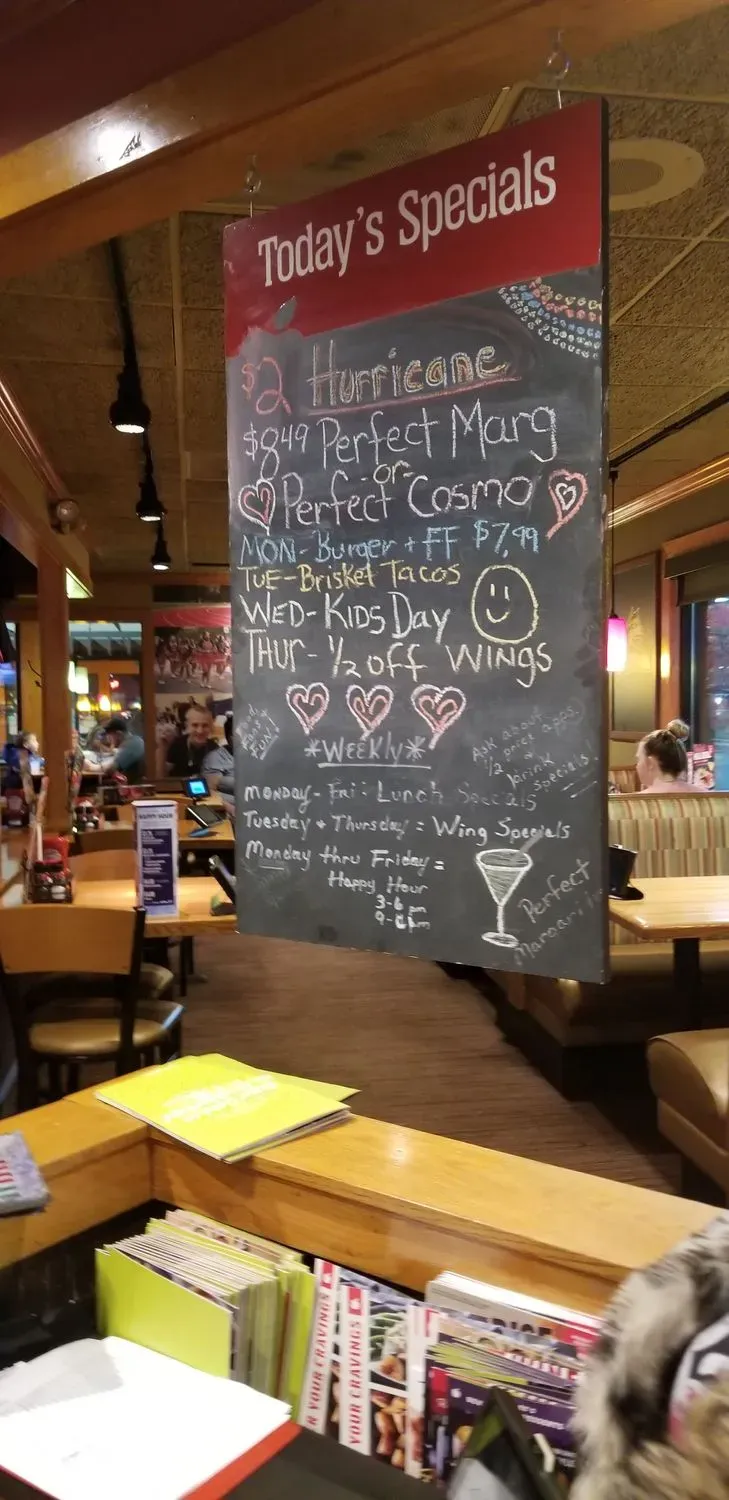 Today's Specials
$2 Hurricane
$8.49 Perfect Marg
-or-
Perfect Cosmo
MON- Burger + FF $7.99
TUE- Brisket Tacos
WED- KIDS Day
THUR- 1/2 off WINGS
Ask about
1/2 price apps
+
drink
specials!
*WEEKLY*
MONDAY- Fri: Lunch Specials
Tuesday + Thursday = Wing Specials
Monday thru Friday =
Happy Hour
3-6 pm
Perfect
Margarita
R YOUR CRAVINGS
YOUR CRAVINGS